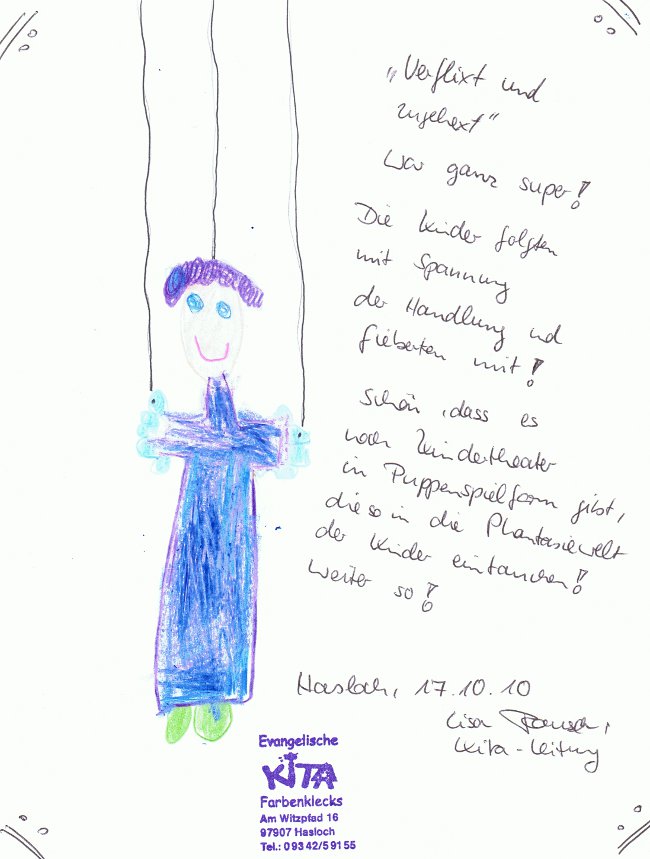 „Verflixt und
zugehext“
war ganz super!
Die Kinder folgten
mit Spannung
der Handlung und
fieberten mit!
Schön, dass es
noch Kindertheater
in Puppenspielform gibt,
die so in die Phantasiewelt
der Kinder eintauchen!
Weiter so!
Hasloch, 17.10.10
Lisa
Kita-Leitung
Evangelische
KITA
Farbenklecks
Am Witzpfad 16
97907 Hasloch
Tel.: 0 93 42/5 91 55